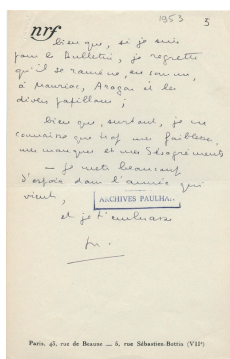 1953 5
nrf
bien que, si je suis
pour le Bulletin, je regrette
qu'il se ramène, en somme,
à Mauriac, Aragon et les
divers papillons ;
bien que, surtout, je me
connaisse que trop mes faiblesses,
mes manques et mes désagréments
— je mets beaucoup
d'espoir dans l'année qui
vient,
ARCHIVES PAULHAN
et je t'embrasse
Paris, 43, rue de Beaune — 5, rue Sébastien-Bottin (VIIe)